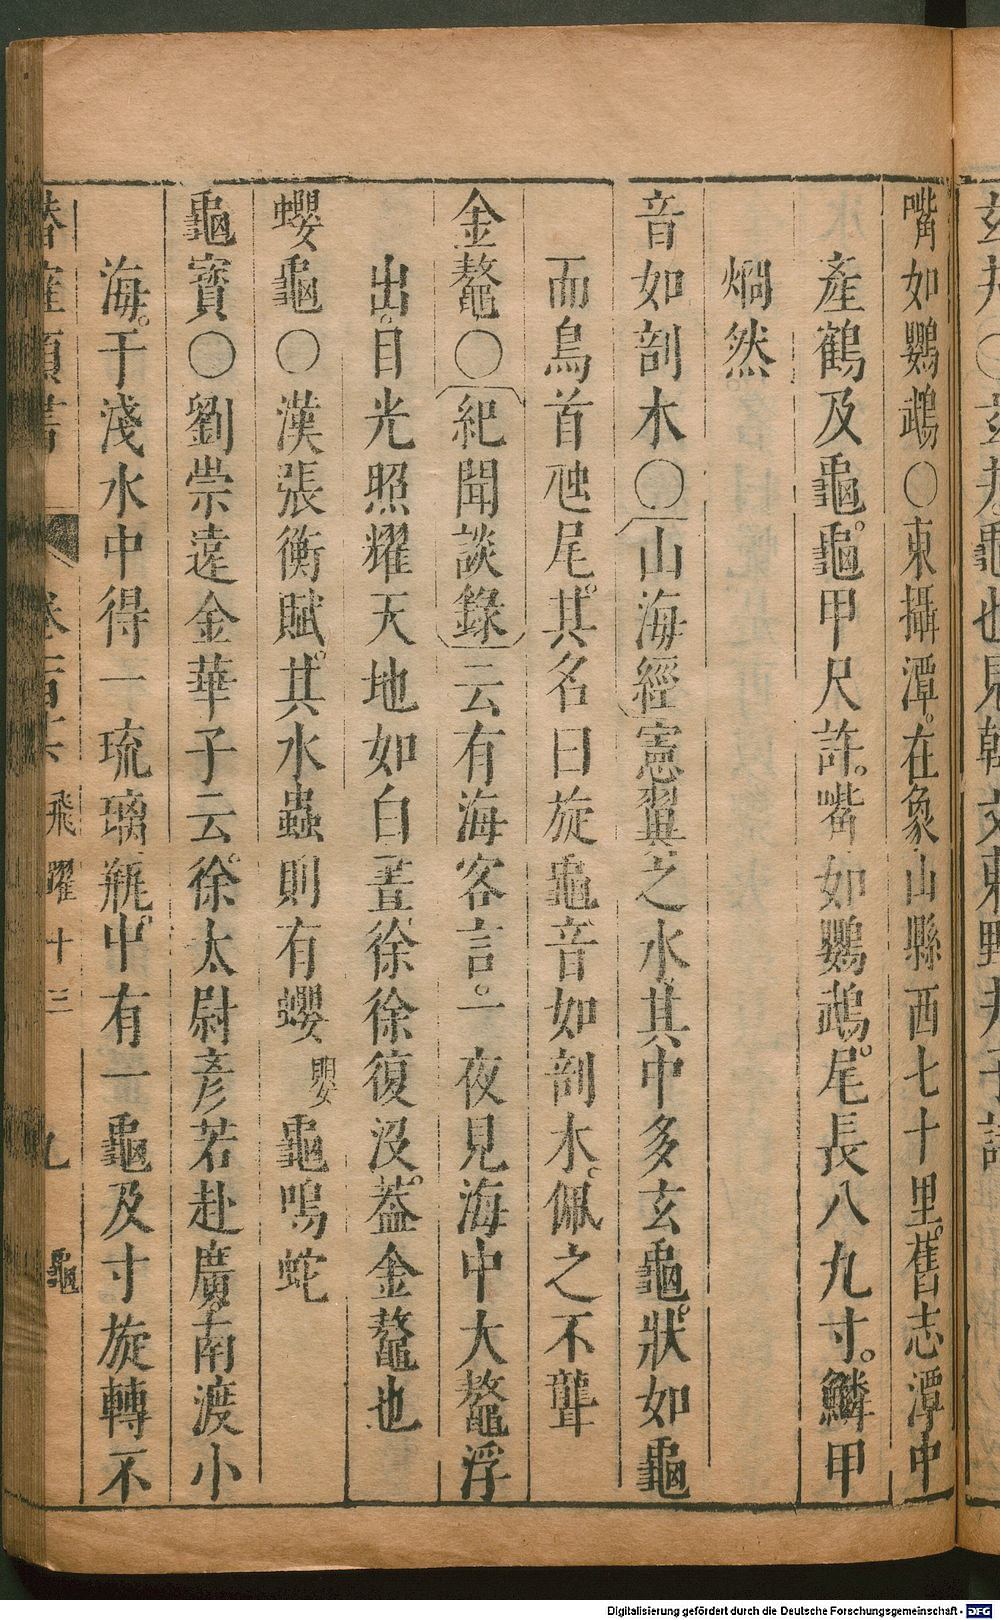 嘴如鸚鵡○東攝潭。在象山縣西七十里。舊志潭中
產鶴及龜。龜甲尺許。嘴如鸚鵡。尾長八九寸。鱗甲
燗然。
音如剖木○山海經憲翼之水。其中多玄龜。狀如龜
而鳥首虺尾。其名曰旋龜音如剖木。佩之不聾
金鰲○紀聞談錄云有海客言。一夜見海中大鰲浮
出。目光照耀天地如白晝徐徐復沒。葢金鰲也
蠳龜○漢張衡賦。其水蟲則有蠳嬰龜鳴蛇
龜寳○劉崇遠金華子云。徐太尉彥若赴廣。南渡小
海。于淺水中得一琉璃瓶。中有一龜及寸旋轉不
飛躍十三 九 龜
Digitalisierung gefördert durch die Deutsche Forschungsgemeinschaft - DFG